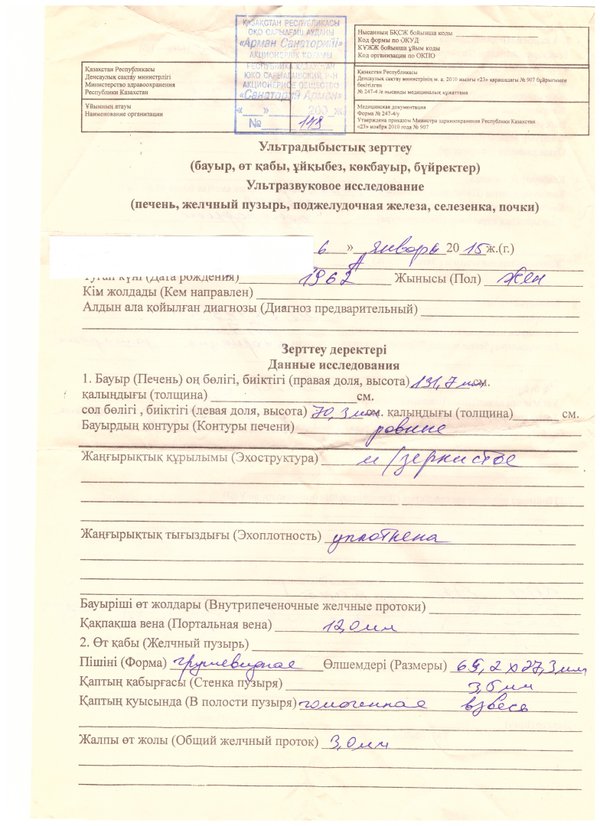 ҚАЗАҚСТАН РЕСПУБЛИКАСЫ
ОҚО САРЫАҒАШ АУДАНЫ
«Арман Санаторийі»
АКЦИОНЕРЛІК ҚОҒАМЫ
РЕСПУБЛИКА КАЗАХСТАН
ЮКО САРЫАГАШСКИЙ Р-Н
АКЦИОНЕРНОЕ ОБЩЕСТВО
«Санаторий Арман»
«___»________200__ж
№ 148
Нысанның БҚСЖ бойынша коды
Код формы по ОКУД
КҰЖЖ бойынша ұйым коды
Код организации по ОКПО
Қазақстан Республикасы
Денсаулық сақтау министрлігі
Министерство здравоохранения
Республики Казахстан
Қазақстан Республикасы
Денсаулық сақтау министрінің м. а. 2010 жылғы «23» қарашадағы № 907 бұйрығымен
бекітілген
№ 247-ë/е нысанды медициналық құжаттама
Ұйымның атауы
Наименование организации
Медицинская документация
Форма № 247-ë/у
Утверждена приказом Министра здравоохранения Республики Казахстан
«23» ноября 2010 года № 907
Ультрадыбыстық зерттеу
(бауыр, өт қабы, ұйқыбез, көкбауыр, бүйректер)
Ультразвуковое исследование
(печень, желчный пузырь, поджелудочная железа, селезенка, почки)
6 » января 2015ж.(г.)
Туған күні (Дата рождения) 1962 Жынысы (Пол) жен
Кім жолдады (Кем направлен)
Алдын ала қойылған диагнозы (Диагноз предварительный)
Зерттеу деректері
Данные исследования
1. Бауыр (Печень) оң бөлігі, биіктігі (правая доля, высота) 131,7 мм.
қалыңдығы (толщина) см.
сол бөлігі , биіктігі (левая доля, высота) 70,3 мм. қалыңдығы (толщина) см.
Бауырдың контуры (Контуры печени) ровные
Жаңғырықтық құрылымы (Эхоструктура) м/зернистое
Жаңғырықтық тығыздығы (Эхоплотность) уплотнена
Бауыріші өт жолдары (Внутрипеченочные желчные протоки)
Қақпақша вена (Портальная вена) 12,0 мм
2. Өт қабы (Желчный пузырь)
Пішіні (Форма) грушевидная Өлшемдері (Размеры) 69,2 х 27,3 мм
Қаптың қабырғасы (Стенка пузыря) 3,6 мм
Қаптың қуысында (В полости пузыря) гомогенная взвесь
Жалпы өт жолы (Общий желчный проток) 3,0 мм